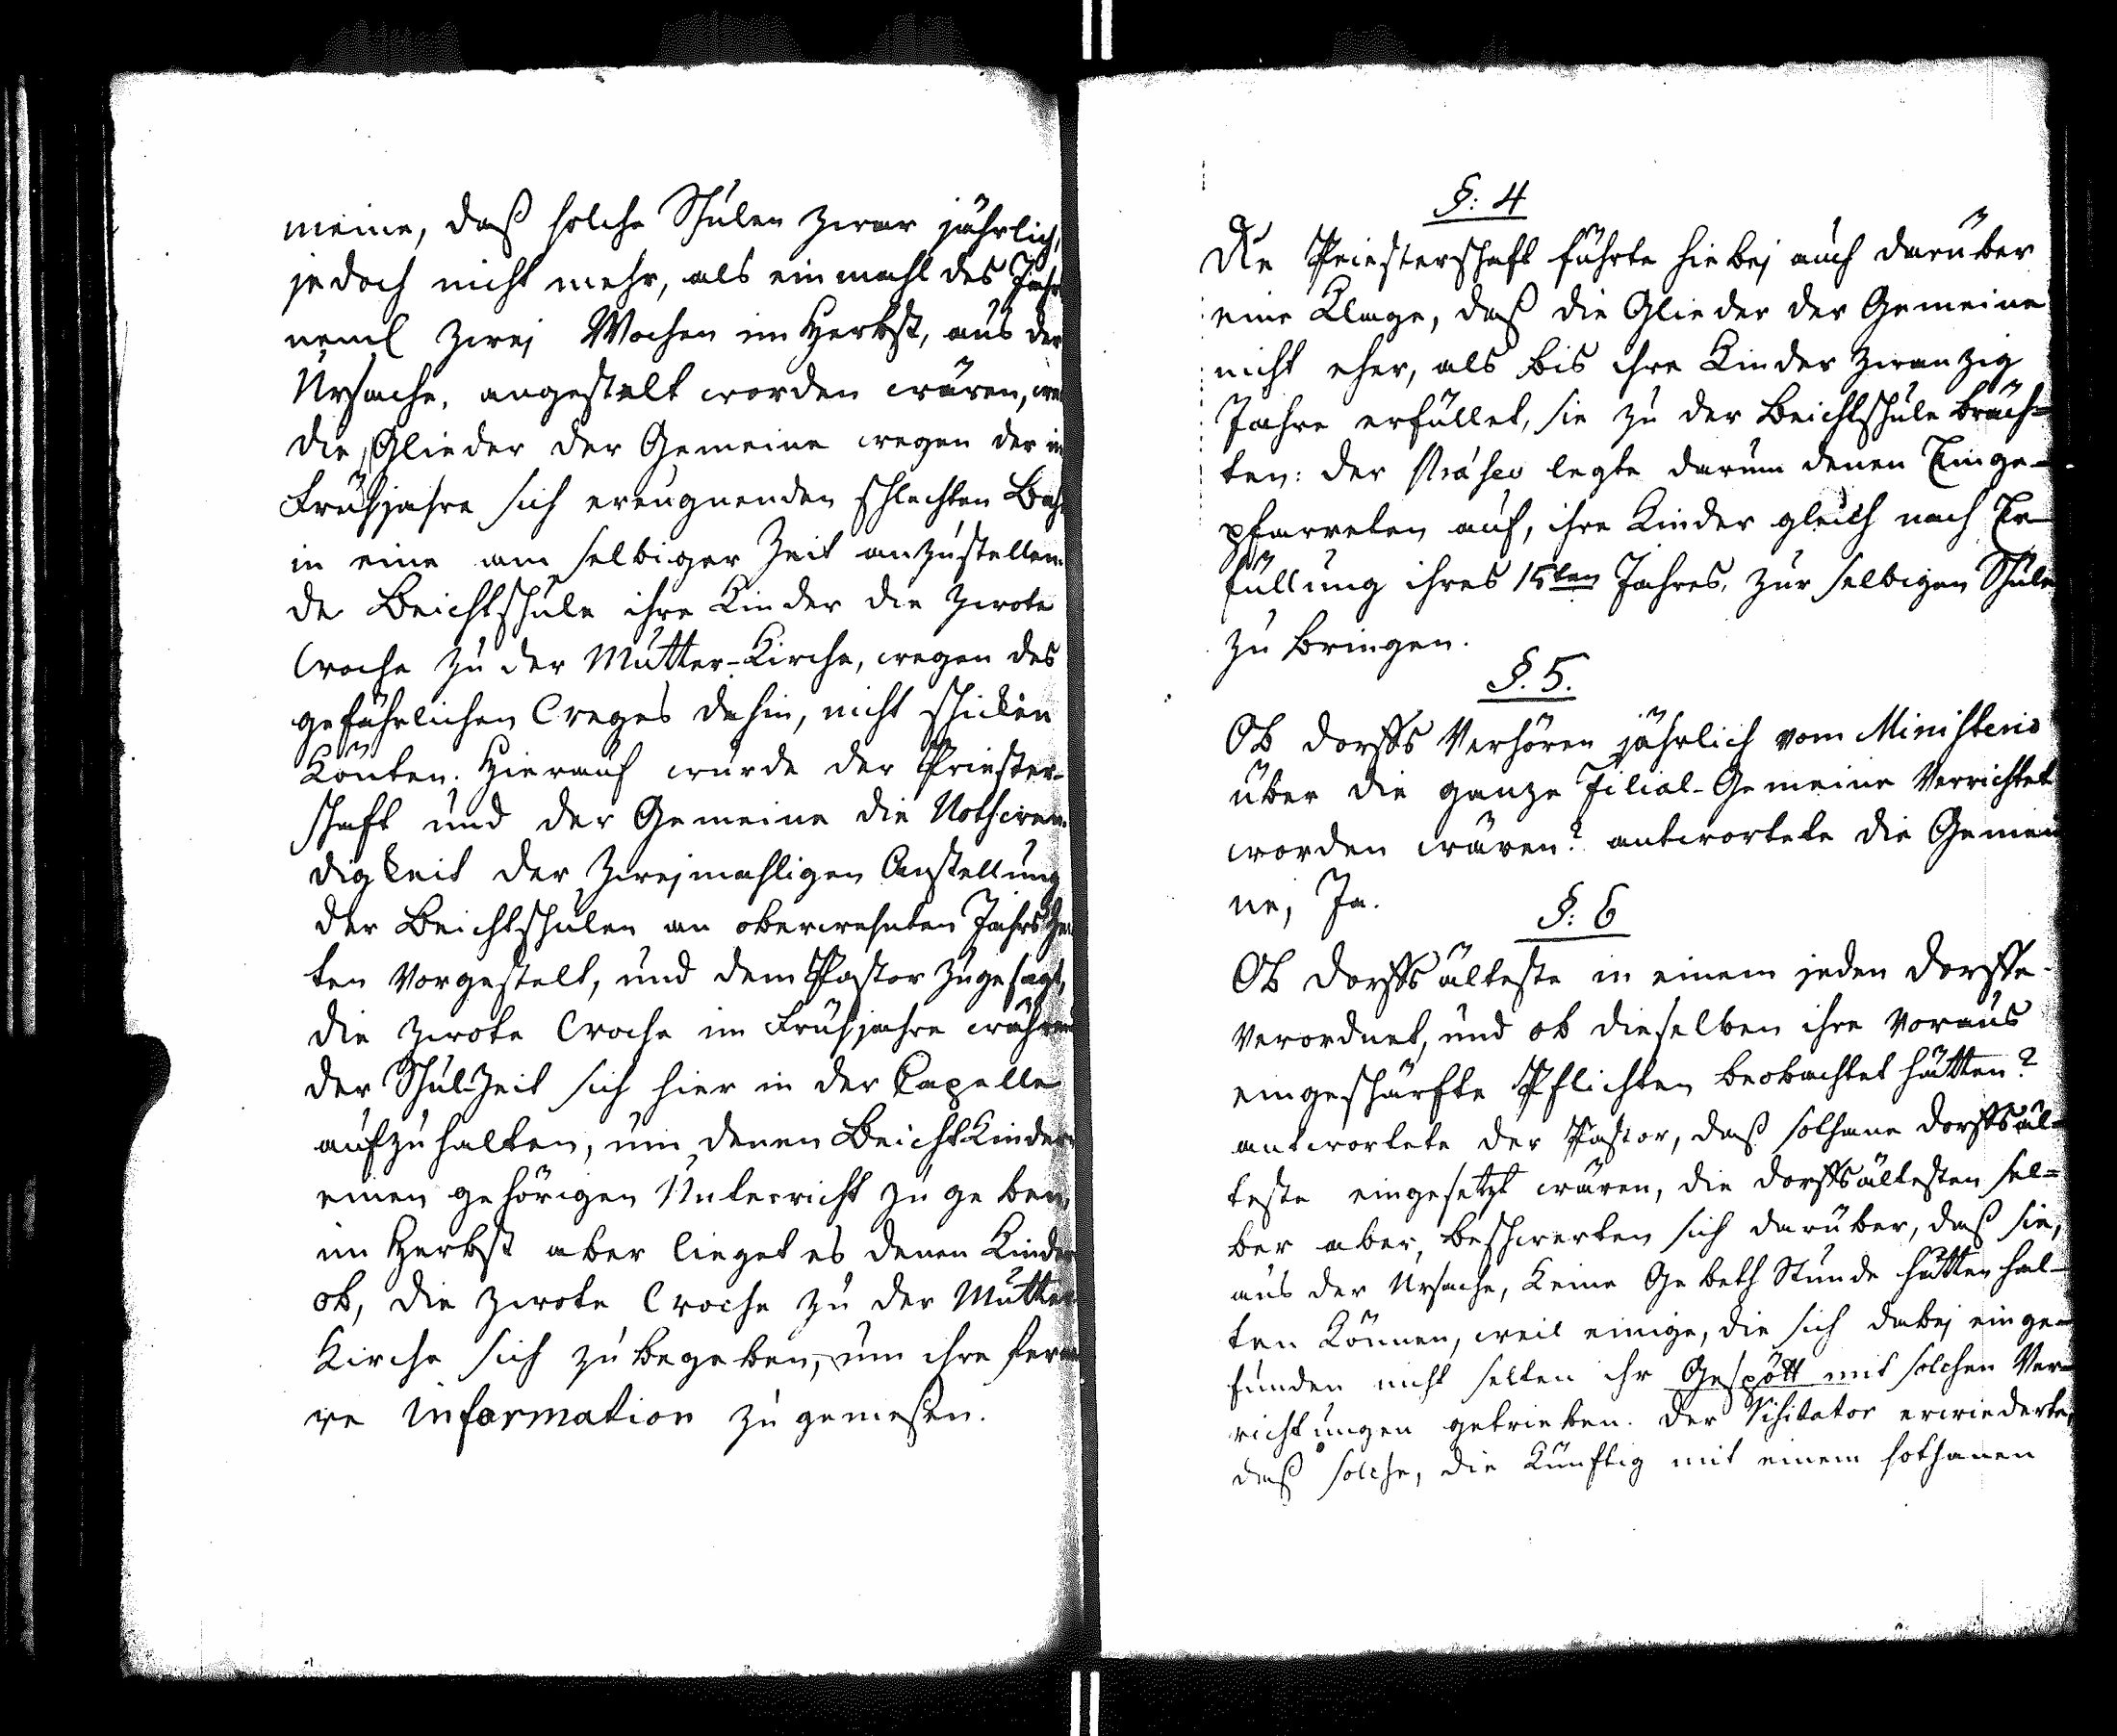 meine, daß solche Schulen zwar jährlich,
jedoch nicht mehr, als einmahl des Jahrs
neml zwej Wochen im Herbst, aus der
Ursache, angestelt worden wären, weil
die Glieder der Gemeine wegen der im
Frühjahre sich ereugnenden schlechten Bahn
in eine am selbiger Zeit anzustellen-
de Beichtschule ihre Kinder die zwote
Woche zu der Mutter-Kirche, wegen des
gefährlichen Weges dahin, nicht schicken
Könten. Hierauf wurde der Priester-
schaft und der Gemeine die Nothwen-
digkeit der zwejmahligen Anstellung
der Beichtschulen an oberwehnten Jahrs Zei
ten Vorgestelt, und dem Pastor zugesagt,
die zwote Woche im Frühjahre während
der Schul-Zeit sich hier in der Capelle
aufzuhalten, um denen Beicht-Kindern
einen gehörigen Unterricht zu geben,
im Herbst aber lieget es denen Kindern
ob, die zwote Woche zu der Mutter
Kirche sich zu begeben, um ihre fer
re information zu geniessen.
§: 4
Die Priesterschaft führte hiebej auch darüber
eine Klage, daß die Glieder der Gemeine
nicht eher, als bis ihre Kinder zwanzig
Jahre erfüllet, sie zu der Beichtschule bräch=
ten: der Präses legte darum denen Einge-
pfarreten auf, ihre Kinder gleich nach Er-
füllung ihres 15ten Jahres, zur selbigen Schule
zu bringen.
§. 5.
Ob dorffs Verhören jährlich vom Ministerio
über die ganze Filial-Gemeine Verrichtet
worden wären? antwortete die Gemei
ne, Ja.
§: 6
Ob dorffs älteste in einem jeden dorffe
Verordnet, und ob dieselben ihre Voraus
eingeschärfte Pflichten beobachtet hätten?
antwortete der Pastor, daß sothane dorffsäl=
teste eingesetzt wären, die dorffsältesten sel=
ber aber, beschwerten sich darüber, daß sie,
aus der Ursache, Keine Gebeth Stunde hätten hal-
ten Können, weil einige, die sich dabej einge-
funden nicht selten ihr Gespött mit solchen Ver-
richtungen getrieben. der Visitator erwiederte,
daß solche, die Künftig mit einem sothanen